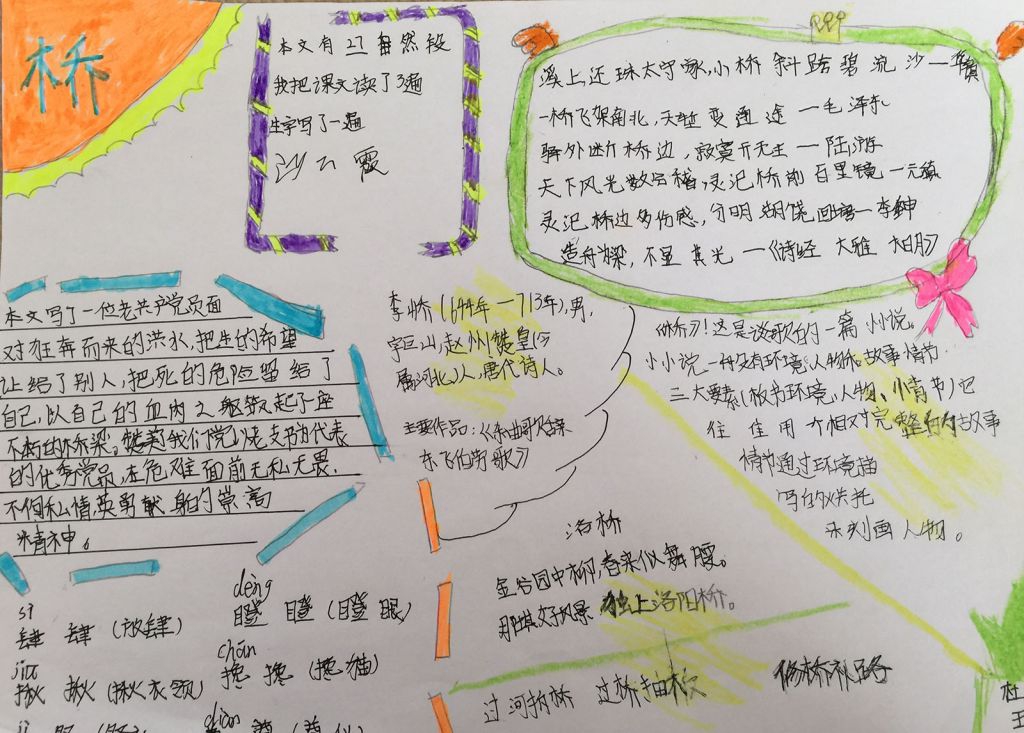 桥
本文有27自然段
我把课文读了3遍
生字写了一遍
溪上还珠太守家,小桥斜跨碧流沙一
一桥飞架南北,天堑变通途一毛泽东
驿外断桥边,寂寞开无主一陆游
天下风光数会稽,灵汜桥前百里镜一元稹
灵汜桥边多伤感,分明湖饶回塘一李绅
造舟为梁,不显其光一《诗经 大雅 大明》
本文写了一位老共产党员面
对狂奔而来的洪水,把生的希望
让给了别人,把死的危险留给了
自己,以自己的血肉之躯筑起了座
不朽的桥梁。赞美我们党以老支书为代表
的优秀党员,在危难面前无私无畏,
不徇私情,英勇献身的崇高
精神。
李峤(644年一713年),男,
字巨山,赵州赞皇(今
属河北)人,唐代诗人。
主要作品:《
东飞伯劳歌》
《桥》!这是谈歌的一篇 小说。
小小说一种没有环境、人物和故事情节
三大要素(故书环境、人物、情节)它
往往用个相对完整的故事
情节通过环境描
写的烘托
来刻画人物。
洛桥
金谷园中柳,春来似舞腰。
那堪好风景 独上洛阳桥。
过河拆桥 过桥抽板 修桥补路
sì
肆 肆 (放肆)
揪 揪 (揪衣领)
dèng
瞪 瞪 (瞪眼)
chān
搀 搀 (搀扶)
杜
王